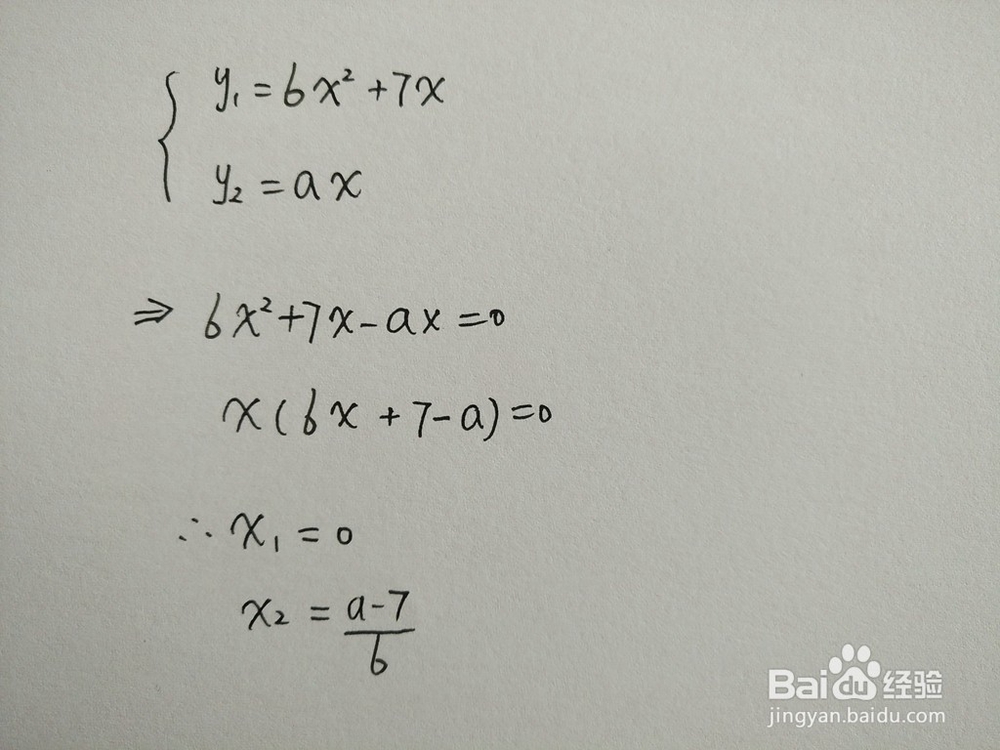 y₁ = 6x² + 7x
y₂ = ax
⇒ 6x² + 7x - ax = 0
x(6x + 7 - a) = 0
∴ x₁ = 0
x₂ = (a-7)/6
Baidu 经验
jingyan.baidu.com